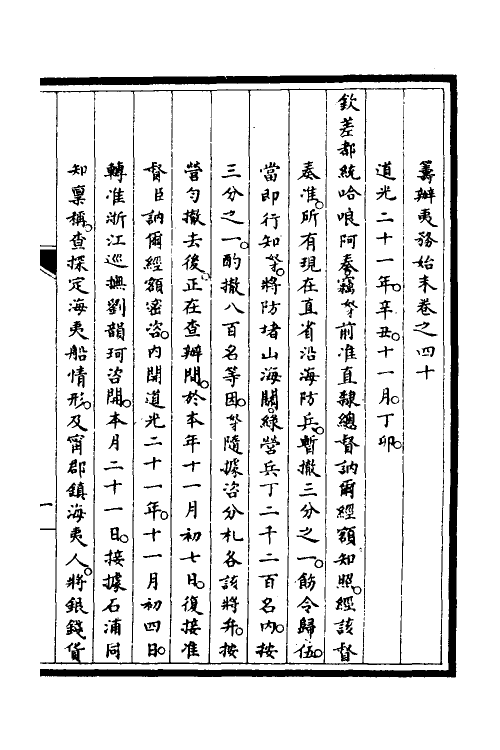 籌辦夷務始末卷之四十
道光二十一年。辛丑。十一月。丁卯。
欽差都統哈哴阿奏竊孥前准直隸總督訥爾經額知照。經該督
奏准。所有現在直省沿海防兵。暫撤三分之一。飭令歸伍。
當即行知孥。將防堵山海關。綠營兵丁二千二百名內。按
三分之一。酌撤八百名等因。孥隨據咨分札各該將弁。按
營勻撤去後。正在查辦間。於本年十一月初七日。復接准
督臣訥爾經額密咨。內開道光二十一年。十一月初四日。
轉准浙江巡撫劉韻珂咨開。本月二十一日。接據石浦同
知稟稱。查探定海夷船情形。及甯郡鎮海夷人。將銀錢貨